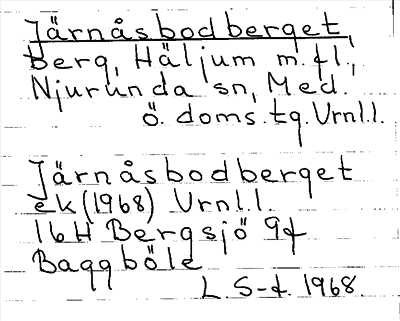 Järnåsbodberget,
Berg, Häljum m.fl.,
Njurunda sn, Med.
ö. doms.tg. Vrnl.l.
Järnåsbodberget
ek (1968) Vrnl.l.
16H Bergsjö 9f
Baggböle
L. S-f. 1968.